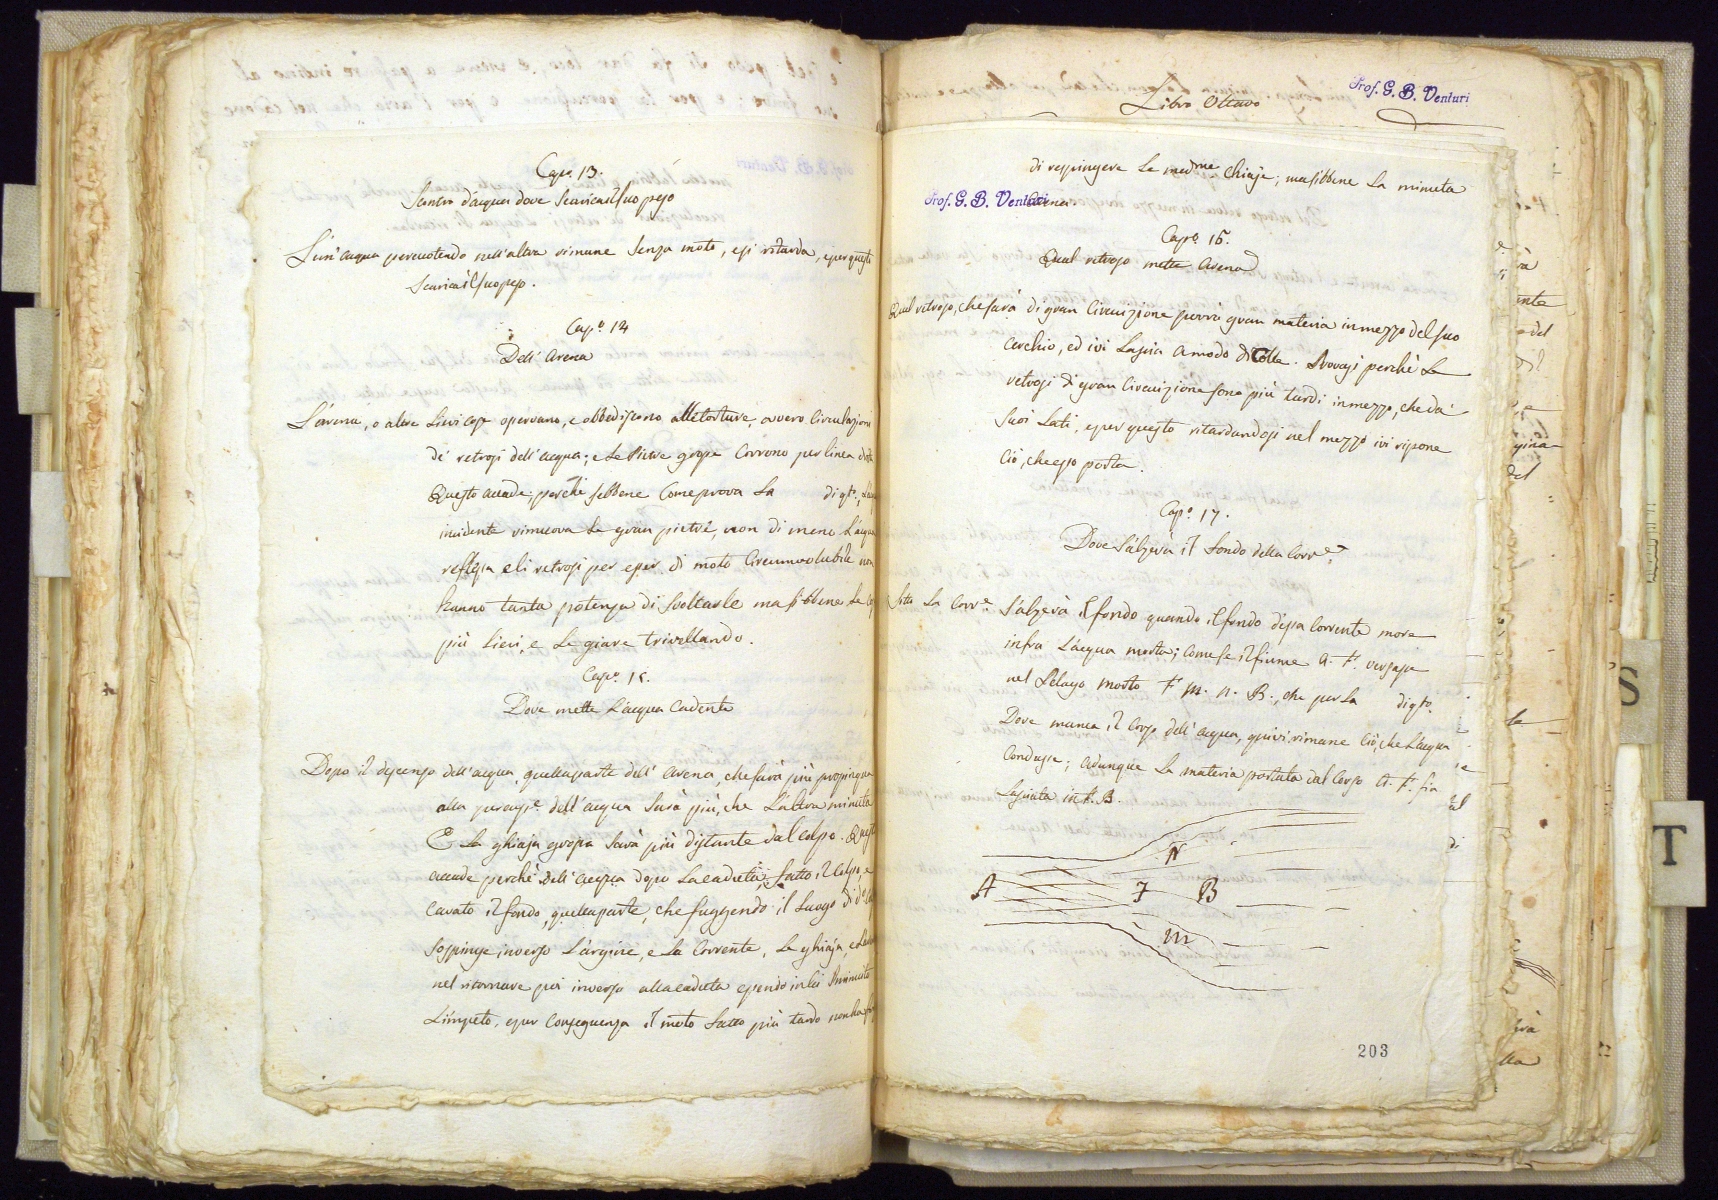 Cap.º 13.
Sentro d'acqua dove Scarica il suo peso
L'un' acqua percuotendo nell'altra rimane senza moto, essi ritarda, e per questo
Scarica il suo peso.
Cap.º 14
Dell' Arena
L'arena, o altre Lievi cose osservano, e obbediscono alle torture, ovvero Circulazioni
de' retrosi dell' acqua; e le Pietre grosse Corrono per linea
Questo accade, perchè sebbene Come prova La di qto.
incidente rimuova le gran pietre, non di meno L'acqua
reflessa e li retrosi per esser di moto Circumvolubile non
hanno tanta potenza di Svoltarle ma sibbene Le
più Lievi, e le giare trivellando.
Cap.º 15.
Dove mette L'acqua Cadente
Dopo il descenso dell' acqua, quella parte dell' Arena, che sarà più propinqua
alla percuss.e dell' acqua Sarà più, che L'altra minuta
E La ghiaja grossa Sarà più distante dal colpo. Questo
accade perchè Dell' acqua dopo La caduta, fatto il Colpo, e
Cavato il fondo, quella parte, che fuggendo il Luogo di d.º
Sospinge inverso L'argine, e La Corrente, Le ghiaja, e
nel ritornare poi inverso alla caduta essendo in lei diminuito
L'impeto, e per Conseguenza il moto fatto più tardo non ha
Libro Ottavo
Prof. G. B. Venturi
di respingere Le med.me Chiaje; ma sibbene La minuta
Prof. G. B. Venturi
Arena.
Cap.º 16.
Qual retroso mette Arena
Qual retroso, che sarà di gran Circuizione porrà gran materia in mezzo del suo
Cerchio, ed ivi Lascia a modo di Colle. Provasi perchè Le
retrosi di gran Circuizione sono più tardi in mezzo, che da'
Suoi Lati, e per questo ritardandosi nel mezzo ivi ripone
Ciò, che esso porta.
Cap.º 17.
Dove S'alzerà il fondo della Corr.e
La Corr.e S'alzerà il fondo quando il fondo d'essa Corrente more
infra L'acqua morta; Come se il fiume A. F. versasse
nel Pelago Morto F. M. N. B., che per La di qto.
Dove manca il Corso dell' acqua, quivi rimane Ciò, che L'acqua
Condusse; adunque La materia portata dal Corso A. F. fia
Lasciata in F. B.
N
A F B
M
203
S
T